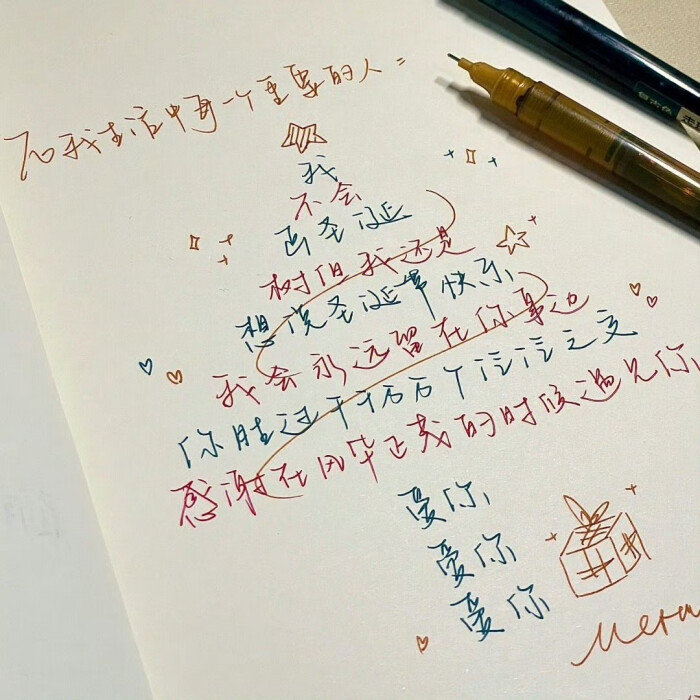 致我生活中每一个重要的人:
我
不会
画圣诞
树但我还是
想说圣诞节快乐
我会永远留在你身边
你胜过千千万万个泛泛之交
感谢在风华正茂的时候遇见你
爱你
爱你
爱你
Merry